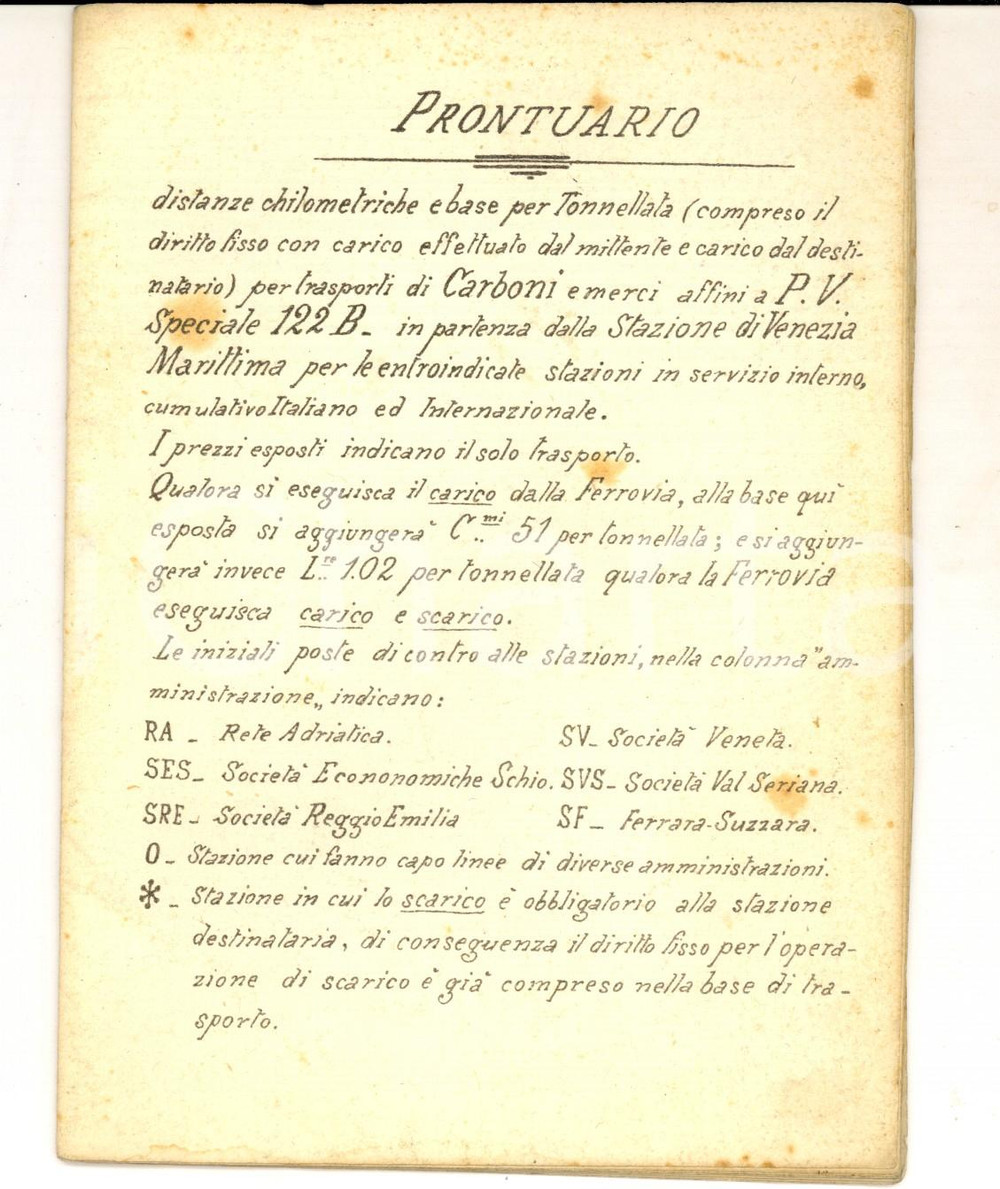 PRONTUARIO
distanze chilometriche e base per Tonnellata (compreso il
diritto fisso con carico effettuato dal mittente e carico dal desti-
natario) per trasporti di Carboni e merci affini a P. V.
Speciale 122 B_ in partenza dalla Stazione di Venezia
Marittima per le entroindicate stazioni in servizio interno,
cumulativo Italiano ed Internazionale.
I prezzi esposti indicano il solo trasporto.
Qualora si eseguisca il carico dalla Ferrovia, alla base qui
esposta si aggiungerà C.mi 51 per tonnellata; e si aggiun-
gerà invece L.re 1.02 per tonnellata qualora la Ferrovia
eseguisca carico e scarico.
Le iniziali poste di contro alle stazioni, nella colonna "am-
ministrazione„ indicano:
RA _ Rete Adriatica. SV_ Società Veneta.
SES_ Società Econonomiche Schio. SVS_ Società Val Seriana.
SRE_ Società Reggio Emilia SF_ Ferrara-Suzzara.
O_ Stazione cui fanno capo linee di diverse amministrazioni.
*_ Stazione in cui lo scarico è obbligatorio alla stazione
destinataria, di conseguenza il diritto fisso per l'opera-
zione di scarico è già compreso nella base di tra-
sporto.